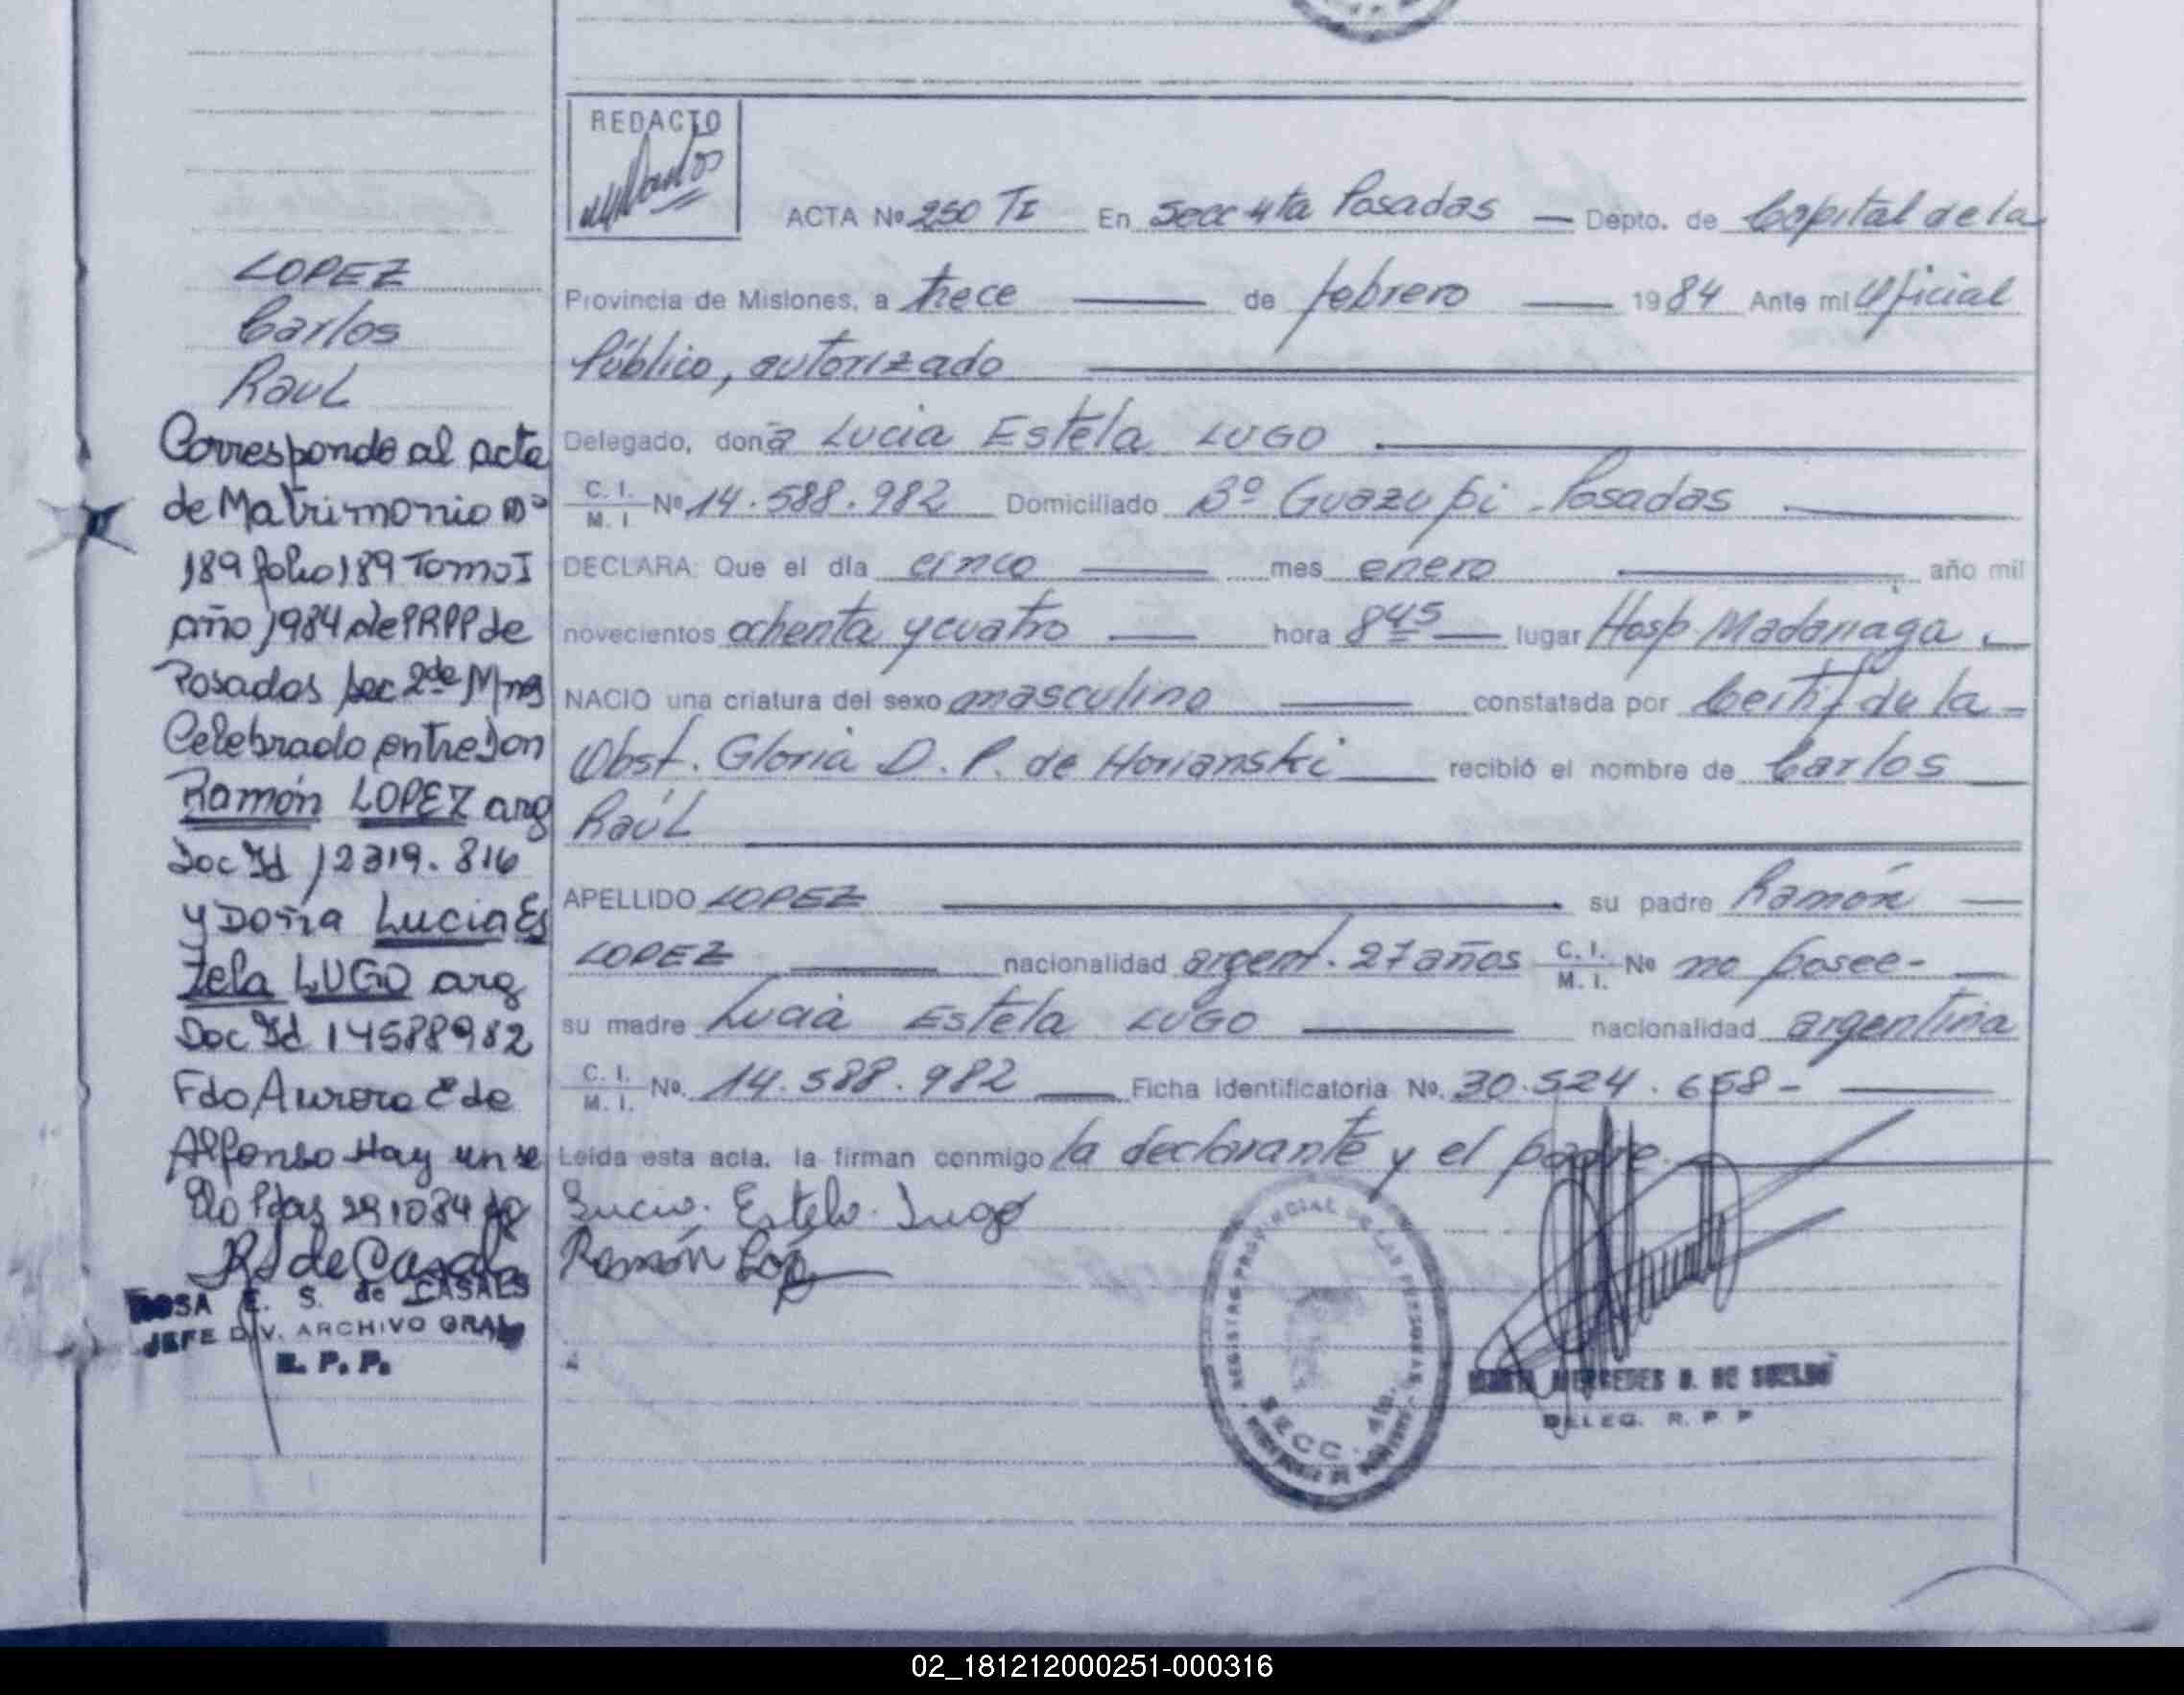 LOPEZ
Carlos
Raul
Corresponde al acta
de Matrimonio Nº
189 folio 189 Tomo I
año 1984 del RPP de
Posadas sec 2da Mnes
Celebrado entre Don
Ramón LOPEZ arg
Doc Id 12319.816
y Doña Lucia Es
tela LUGO arg
Doc Id 14588982
Fdo Aurora E de
Alfonso Hay un se
llo Pdas 291084
R S de Casals
ROSA E. S. de CASALS
JEFE DIV. ARCHIVO GRAL
R. P. P.
REDACTO
ACTA Nº 250 TI En Secc 4ta Posadas — Depto. de Capital de la
Provincia de Misiones, a trece — de febrero — 1984 Ante mi Oficial
Público, autorizado
Delegado, doña Lucia Estela LUGO
C. I. / M. I. Nº 14.588.982 Domiciliado Bº Guazupi - Posadas
DECLARA: Que el día cinco — mes enero — año mil
novecientos ochenta y cuatro — hora 8 45 — lugar Hosp. Madariaga
NACIO una criatura del sexo masculino — constatada por Certif de la -
Obst. Gloria D. P. de Horianski — recibió el nombre de Carlos
Raúl
APELLIDO LOPEZ — su padre Ramón —
LOPEZ — nacionalidad argent. 27 años C. I. / M. I. Nº no posee -
su madre Lucia Estela LUGO — nacionalidad argentina
C. I. / M. I. No. 14.588.982 — Ficha identificatoria No. 30.524.658 -
Leída esta acta, la firman conmigo la declarante y el padre.
Lucia Estela Lugo
Ramón Lop
REGISTRO PROVINCIAL DE LAS PERSONAS
SECC. 4ta.
MERCEDES
DELEG. R. P. P
02_181212000251-000316